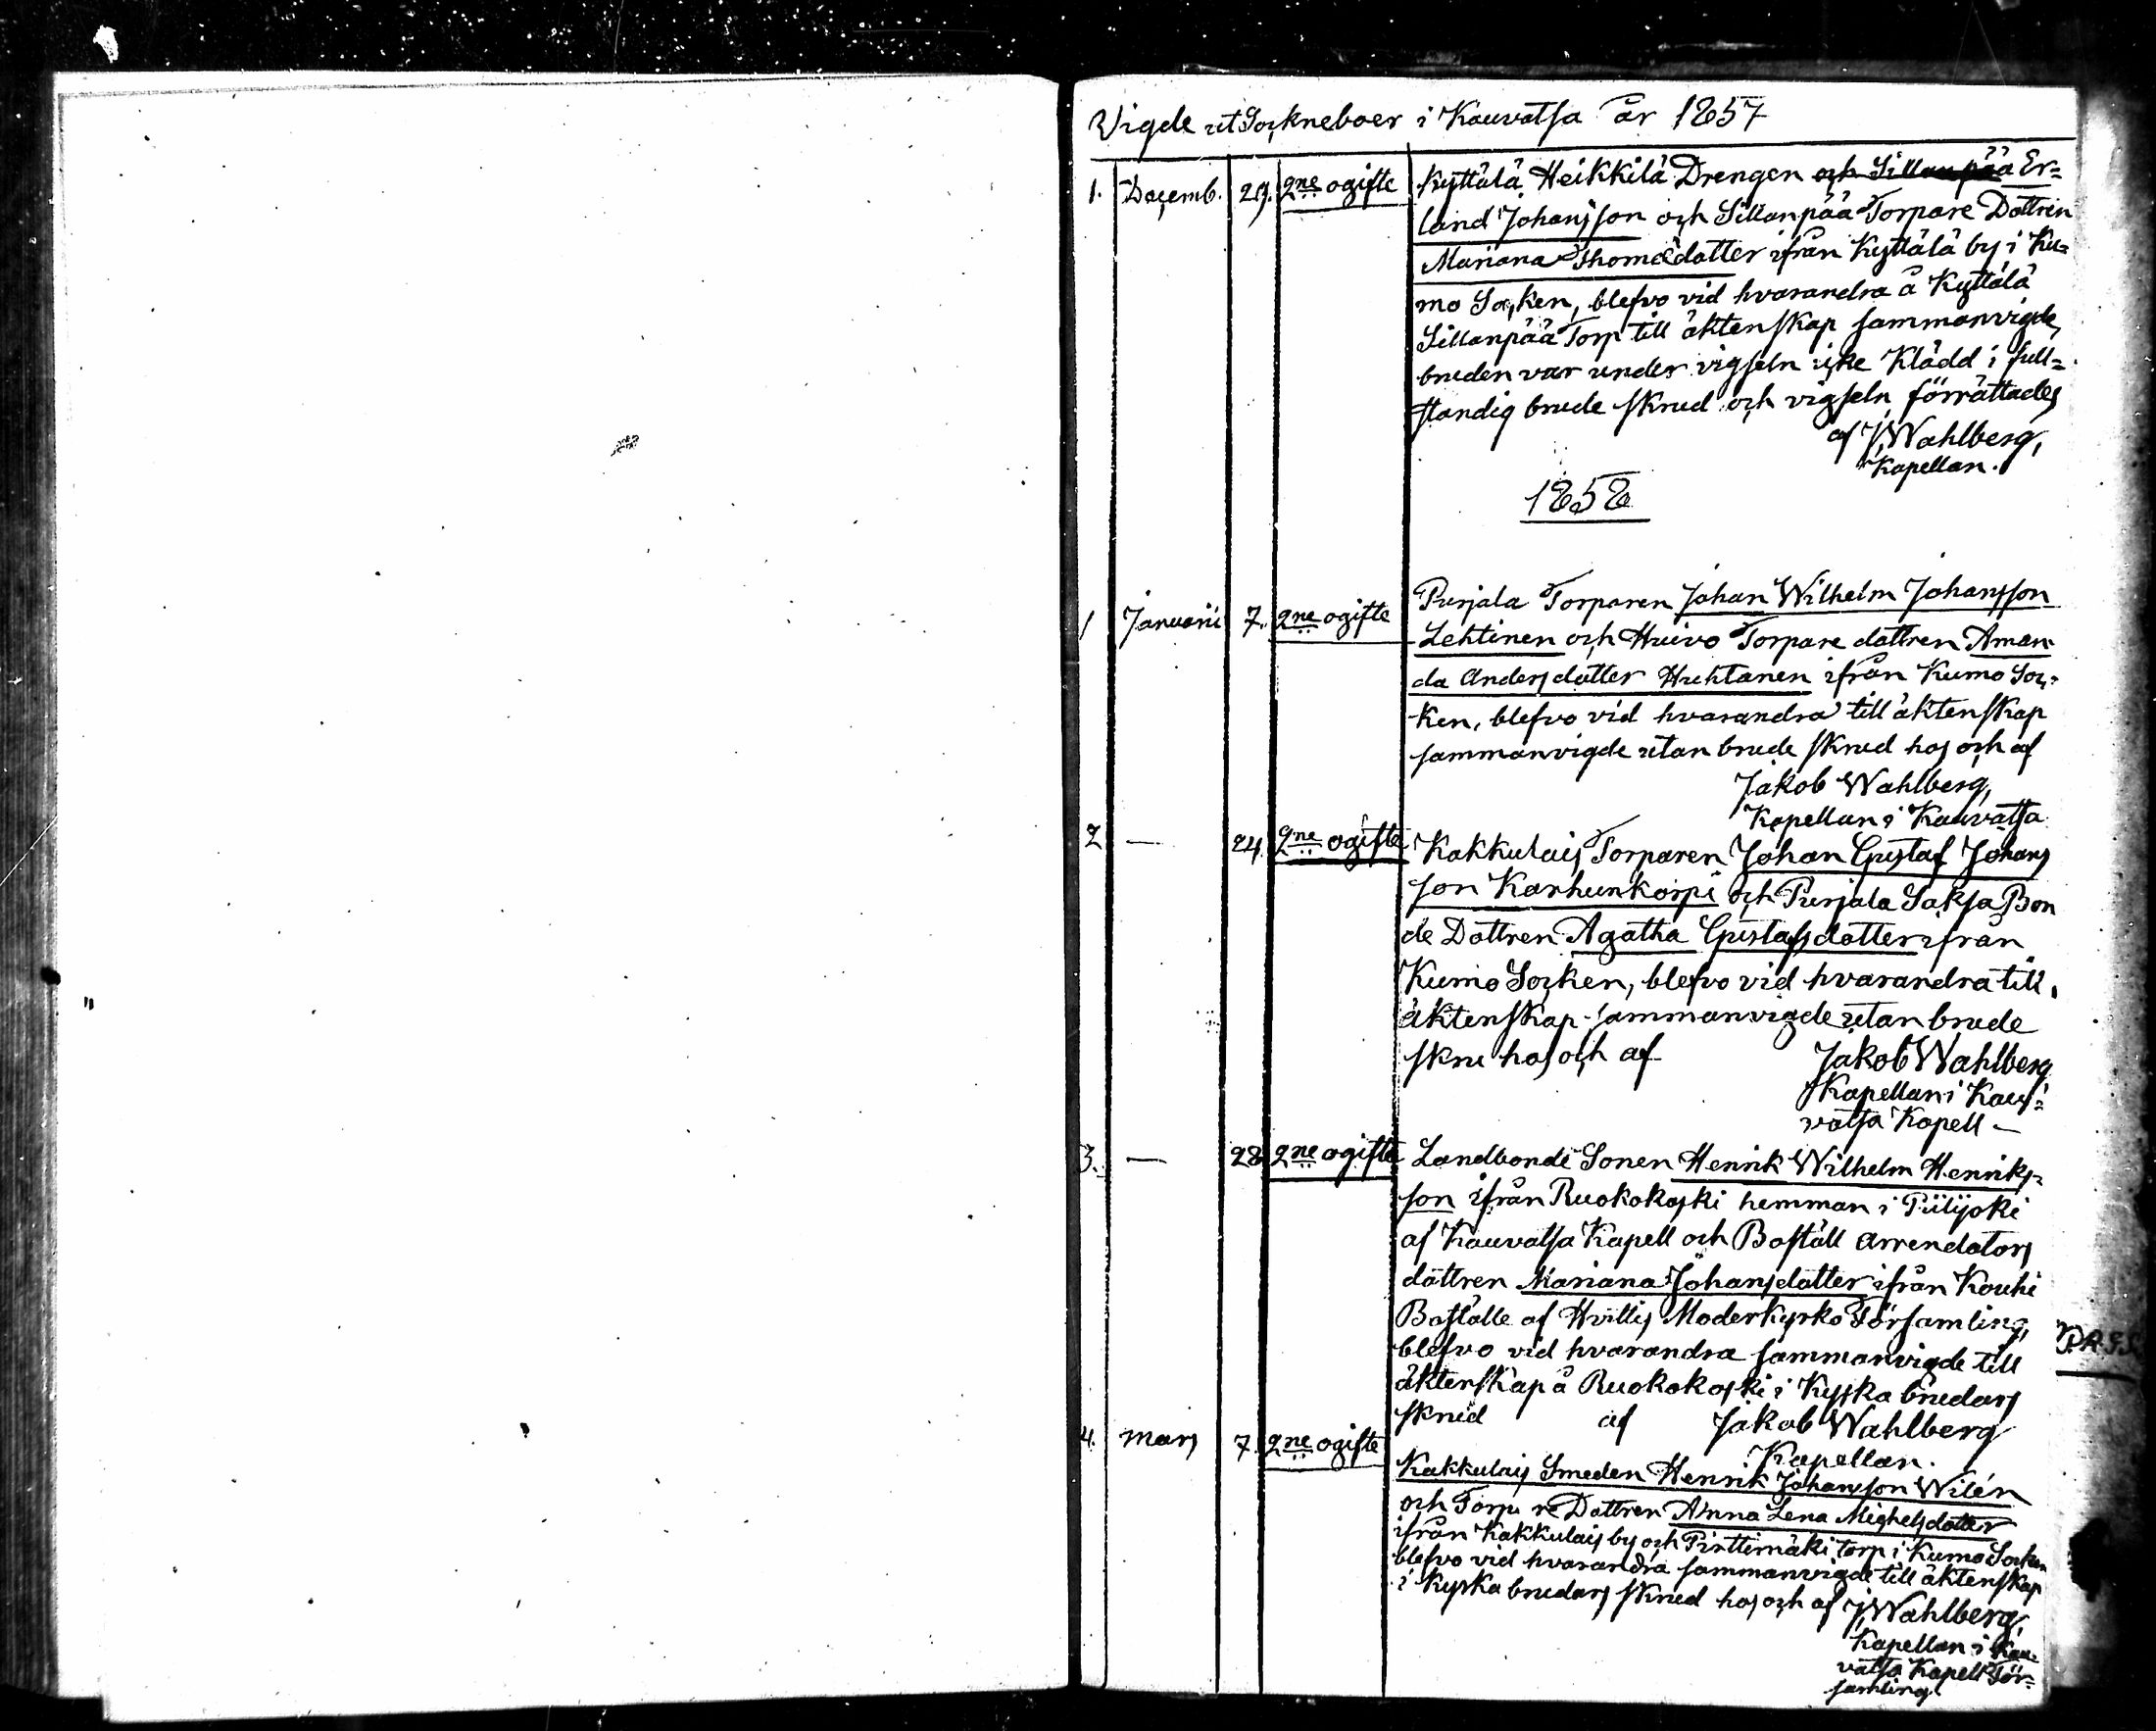 Vigde utSockneboer i Kauvatsa år 1857
1. Decemb. 29. 2ne ogifte Kyttälä Heikkilä Drengen och Sillanpää Er=
land Johansson och Sillanpää Torpare Dottren
Mariana Thomædotter ifrån Kyttälä by i Ku=
mo Socken, blefvo vid hvarandra å Kyttälä
Sillanpää Torp till äktenskap sammanvigde,
bruden var under vigseln icke Klädd i full=
standig brude skrud och vigseln förrättades
af J. Wahlberg,
Kapellan.
1858
1 Januarii 7. 2ne ogifte Purjala Torparen Johan Wilhelm Johansson
Lehtinen och Huivo Torpare dottren Aman
da Andersdotter Huhtanen ifrån Kumo Soc=
ken, blefvo vid hvarandra till äktenskap
sammanvigde utan brude skrud hos och af
Jakob Wahlberg,
Kapellan i Kauvatsa
2 — 24. 2ne ogifte Kakkulais Torparen Johan Gustaf Johans
son Karhunkorpi och Purjala Saksa Bon
de Dottren Agatha Gustafsdotter ifrån
Kumo Socken, blefvo vid hvarandra till
äktenskap sammanvigde utan brude
skru hos och af Jakob Wahlberg
Kapellan i Kau=
vatsa Kapell —
3. — 28 2ne ogifte Landbonde Sonen Henrik Wilhelm Henriks=
son ifrån Ruokokoski hemman i Piilijoki
af Kauvatsa Kapell och Boställ arrendators
dottren Mariana Johansdotter ifrån Kouhi
Boställe af Hvittis Moderkyrko Församling,
blefvo vid hvarandra sammanvigde till
äktenskap å Ruokokoski i Kyska brudars
skrud af Jakob Wahlberg
Kapellan.
P.A.SS.
4. Mars 7. 2ne ogifte Kakkulais Smeden Henrik Johansson Wilén
och Torpare Dottren Anna Lena Michelsdotter
ifrån Kakkulais by och Pirttimäki torp i Kumo Socken
blefvo vid hvarandra sammanvigde till äktenskap
i Kyska brudars skrud hos och af J. Wahlberg,
Kapellan i Kau=
vatsa Kapell För=
samling.